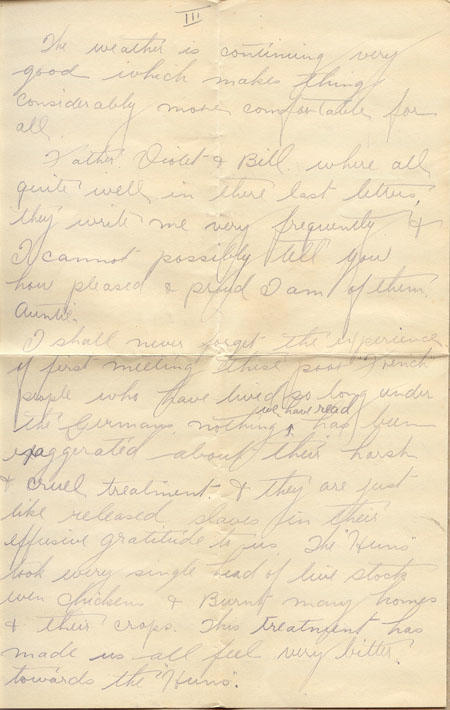 III
The weather is continuing very
good which makes things
considerably more comfortable for
all.
Father, Violet & Bill where all
quite well in there last letters,
they write me very frequently &
I cannot possibly tell you
how pleased & proud I am of them,
Auntie.
I shall never forget the experience
of first meeting these poor French
people who have lived so long under
the Germans, nothing we have read has been
exaggerated about their harsh
& cruel treatment & they are just
like released slaves in their
effusive gratitude to us. The "Huns"
took every single head of live stock
even chickens & Burnt many homes
& their crops. This treatment has
made us all feel very bitter
towards the "Huns".